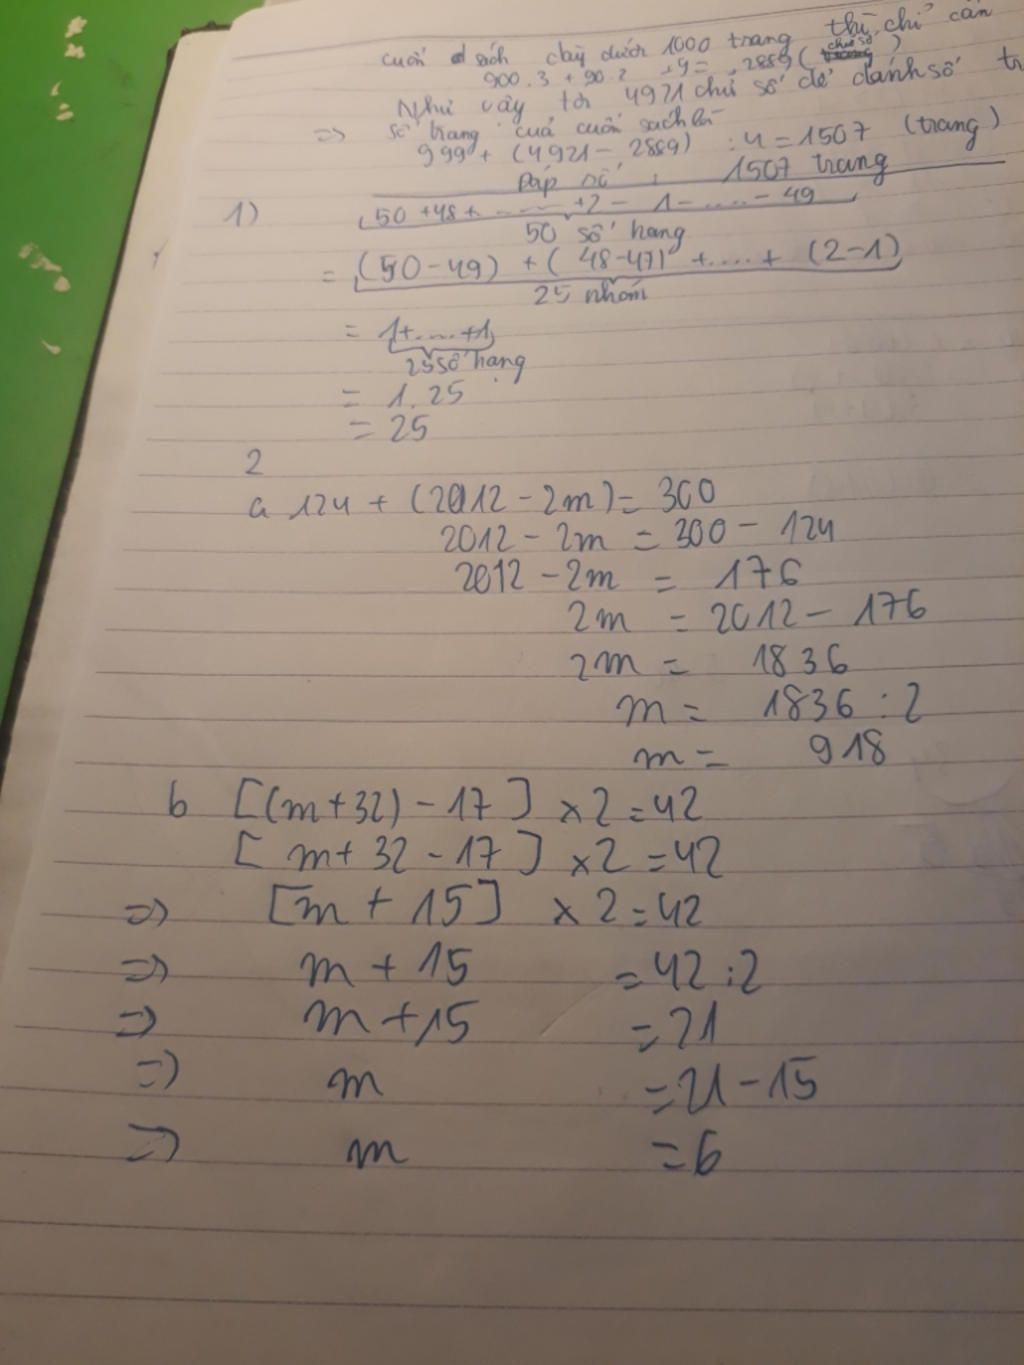 cuốn sách dày dưới 1000 trang thì chỉ cần
900.3 + 90.2 + 9 = 2889 (chữ số)
Như vậy tới 4921 chữ số để đánh số tr
=> số trang cuả cuốn sách là
999 + (4921 - 2889) : 4 = 1507 (trang)
Đáp số : 1507 trang
1) 50 + 48 + ...... + 2 - 1 - ..... - 49
50 số hạng
= (50 - 49) + (48 - 47) + .... + (2 - 1)
25 nhóm
= 1 + .... + 1
25 số hạng
= 1.25
= 25
2
a 124 + (2012 - 2m) = 300
2012 - 2m = 300 - 124
2012 - 2m = 176
2m = 2012 - 176
2m = 1836
m = 1836 : 2
m = 918
b [(m + 32) - 17] x 2 = 42
[m + 32 - 17] x 2 = 42
=> [m + 15] x 2 = 42
=> m + 15 = 42 : 2
=> m + 15 = 21
=> m = 21 - 15
=> m = 6